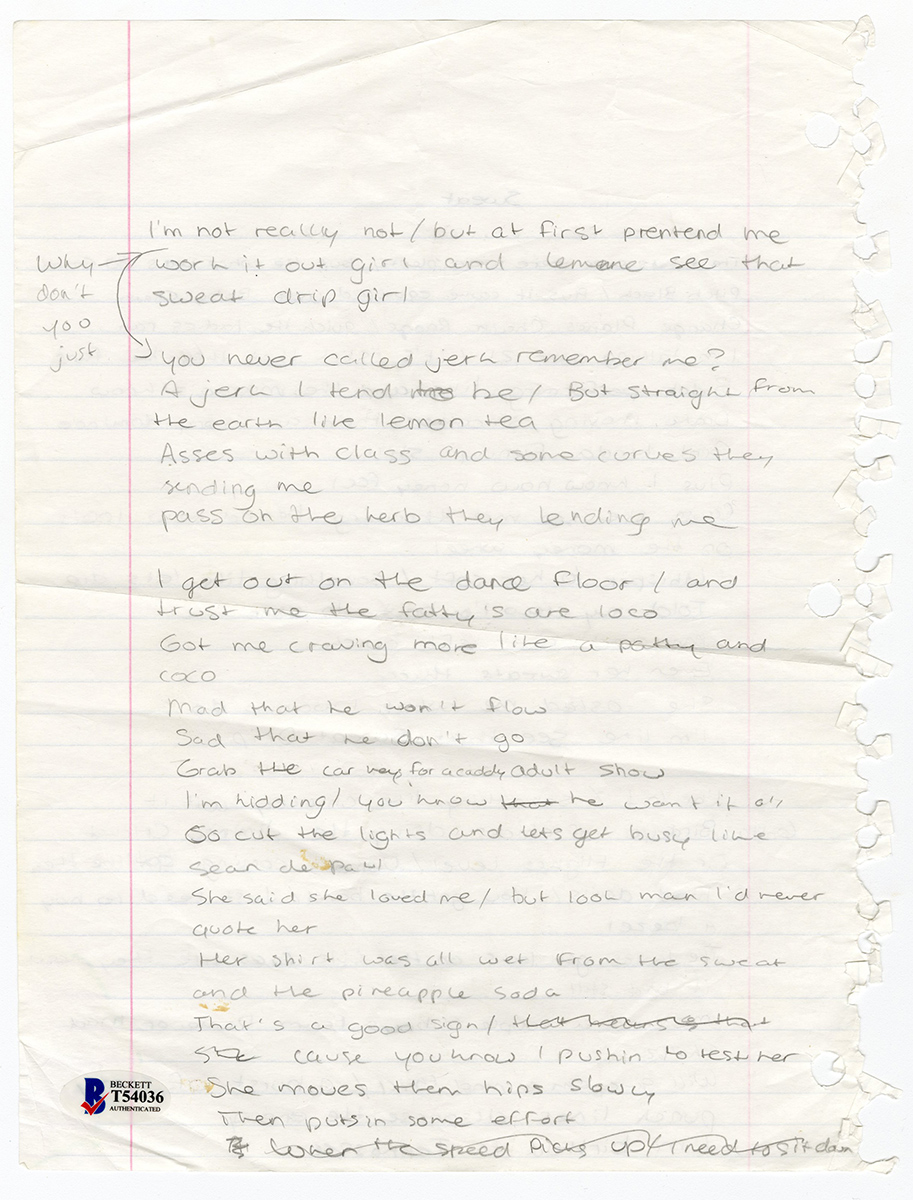 I'm not really not / but at first prentend me
work it out girl and lemme see that
sweat drip girl
Why
don't
you
just
you never called jerk remember me?
A jerk I tend to be / But straight from
the earth like lemon tea
Asses with class and some curves they
sending me
pass on the herb they lending me
I get out on the dance floor / and
trust me the fatty's are loco
Got me craving more like a patty and
coco
Mad that he won't flow
Sad that he don't go
Grab the car keys for a caddy adult show
I'm kidding / you know that he want it all
So cut the lights and lets get busy like
sean de paul
She said she loved me / but look man I'd never
quote her
Her shirt was all wet from the sweat
and the pineapple soda
That's a good sign / that means is that
she cause you know I pushin to test her
She moves them hips slowly
Then puts in some effort
When the speed picks up / I need to sit down
BECKETT
T54036
AUTHENTICATED